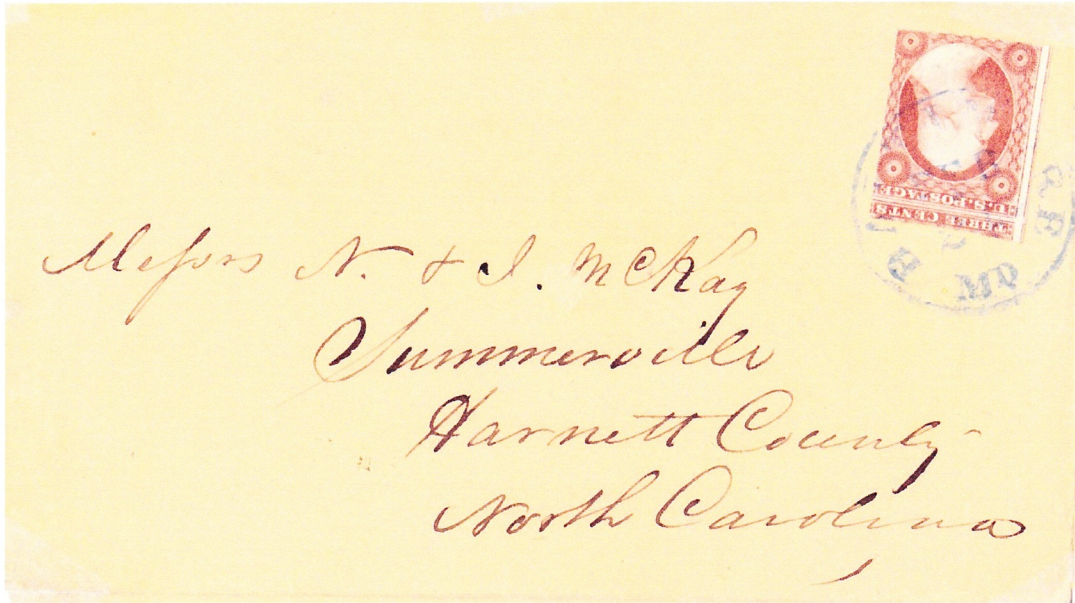 U.S. POSTAGE
THREE CENTS
MO
Messrs N. & I. McKay
Summerville
Harnett County
North Carolina